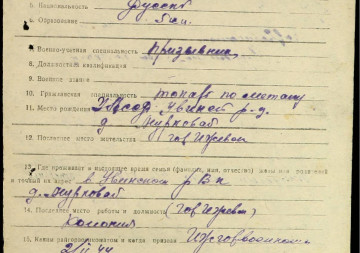 5. Национальность русский
6. Образование 5 кл.
7. Военно-учетная специальность призывник
8. Должностная квалификация
9. Воинское звание
10. Гражданская специальность токарь по металу
11. Место рождения УАССР, Увинский р-н
д. Журковай
12. Последнее место жительства гор Ижевск
13. Где проживает в настоящее время семья (фамилия, имя, отчество) жены или родителей
и точный их адрес в Увинском р-не
д. Журковай
14. Последнее место работы и должность (гор Ижевск)
колония
15. Каким райгорвоенкоматом и когда призван Ижгорвоенкомат